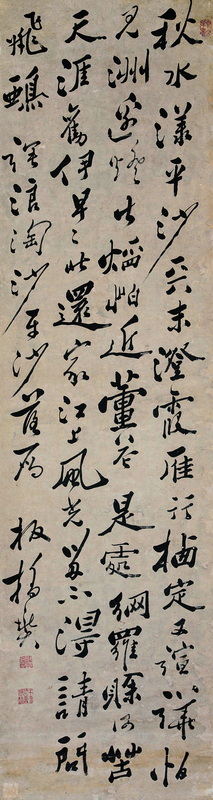 秋水漾平沙天末澄霞雁行栖定又喧嘩怕
見洲邊燈火焰怕近蘆花是處網羅賒何苦
天涯勸伊早早北還家江上風光留不得請問
飛鴉 浪淘沙平沙落雁 板橋燮